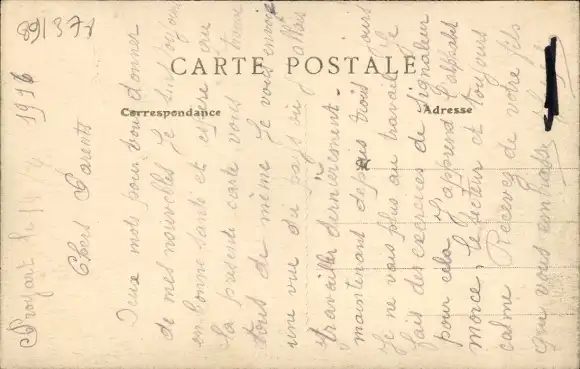 891371
CARTE POSTALE
Correspondance
Adresse
Proyart le 11/4 1916
Chers Parents
Deux mots pour vous donner
de mes nouvelles Je suis toujours
en bonne santé et espère que
la présente carte vous trouve
tous de même Je vous envoie
une vue du pays où j'allais
travailler dernièrement.
maintenant depuis trois jours
Je ne vais plus au travail Je
fais des exercices de Signaleur
pour cela J'apprend l'alphabet
morce, le secteur est toujours
calme Recevez de votre fils
Que vous embrasse